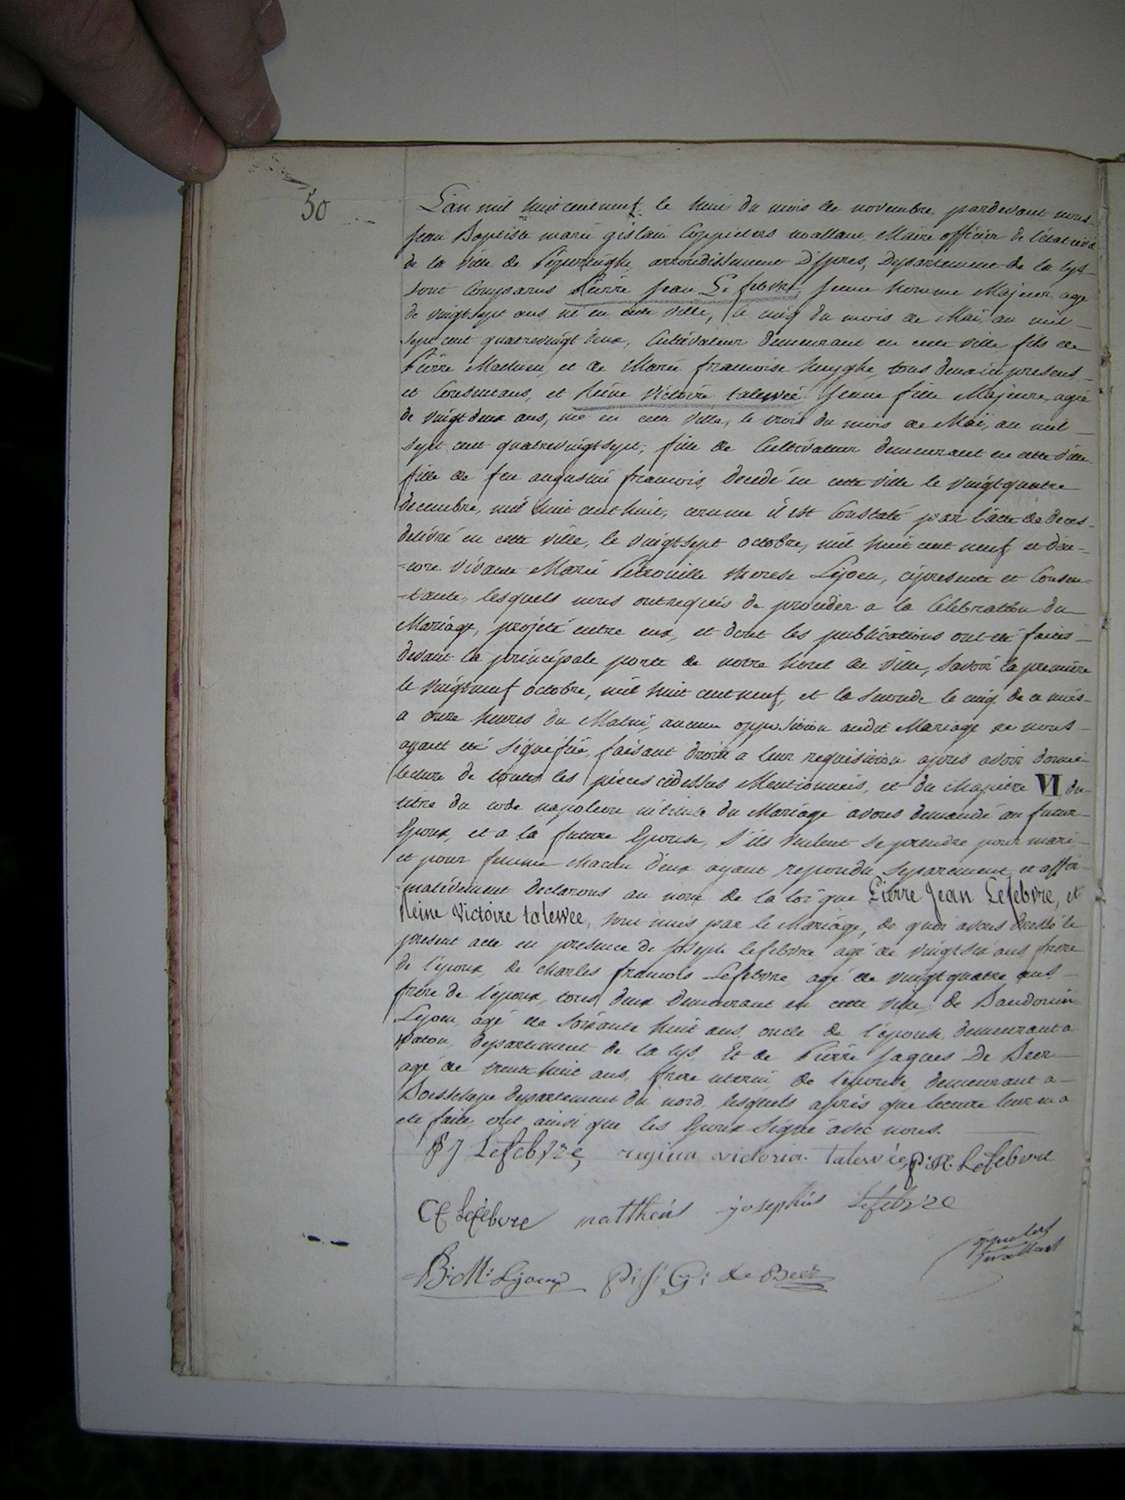 50
L'an mil huit cent neuf le huit du mois de novembre pardevant nous
Jean Baptiste marie gislain Coppieters wallant Maire officier de l'état civil
de la ville de Poperinghe, arrondissement D'ypres, Departement de la Lys
sont Comparus Pierre Jean Lefebvre Jeune homme Majeur agé
de vingtsept ans né en cette ville, le cinq du mois de Mai, an mil
sept cent quatrevingt deux, Cultivateur demeurant en cette ville, fils de
Pierre Mathieu, et de Marie francoise huyghe, tous deux ici presens
et Consentans, et Reine Victoire talewée Jeune fille Majeure, agée
de vingt deux ans, née en cette ville, le trois du mois de Mai, an mil
sept cent quatrevingt sept, fille de Cultivateur demeurant en cette ville
fille de feu augustin francois, Decedé en cette ville le vingtquatre
decembre, mil huit cent huit, comme il est Constaté par l'acte de deces
delivré en cette ville, le vingtsept octobre, mil huit cent neuf et d'en-
-core vivante Marie Petronille therese Lejoeu, cipresente et Consen-
-tante, lesquels nous ont requis de proceder a la Celebration du
Mariage, projeté entre eux, et dont les publications ont eté faites
devant la principale porte de notre hotel de ville, Savoir la premiere
le vingtneuf octobre, mil huit cent neuf, et la Seconde le cinq de ce mois
a onze heures du Matin, aucune opposition audit Mariage ne nous
ayant eté Signifiée, faisant droit a leur requisition apres avoir donné
lecture de toutes les pieces cidessus Mentionnées, et du Chapitre VI du
titre du code napoleon intitulé du Mariage avons demandé au futur
Epoux, et a la future Epouse, S'ils veulent se prendre pour mari
et pour femme chacun d'eux ayant repondu Separement et affir-
-mativement Declarons au nom de la loi que Pierre Jean Lefebvre, et
Reine Victoire talewée, sont unis par le Mariage, de quoi avons dressé le
present acte en presence de Joseph lefebvre agé de vingtsix ans frere
de l'epoux, de charles francois Lefebvre agé de vingtquatre ans
frere de l'epoux, tous deux demeurant en cette ville, de Baudouin
Lejoeu, agé de Soixante huit ans oncle de l'épouse, demeurant a
Watou, departement de la lys Et de Pierre Jaques De Beer
agé de trente huit ans, frere uterin de l'epouse demeurant a
departement du nord, lesquels après que lecture leur en a
eté faite, ont ainsi que les Epoux Signé avec nous.
PJ Lefebvre regina victoria talewée P: M. Lefebvre
CF Lefebvre mattheus josephus Lefebvre
B: M: Lejoeu P: J: G: de Beer